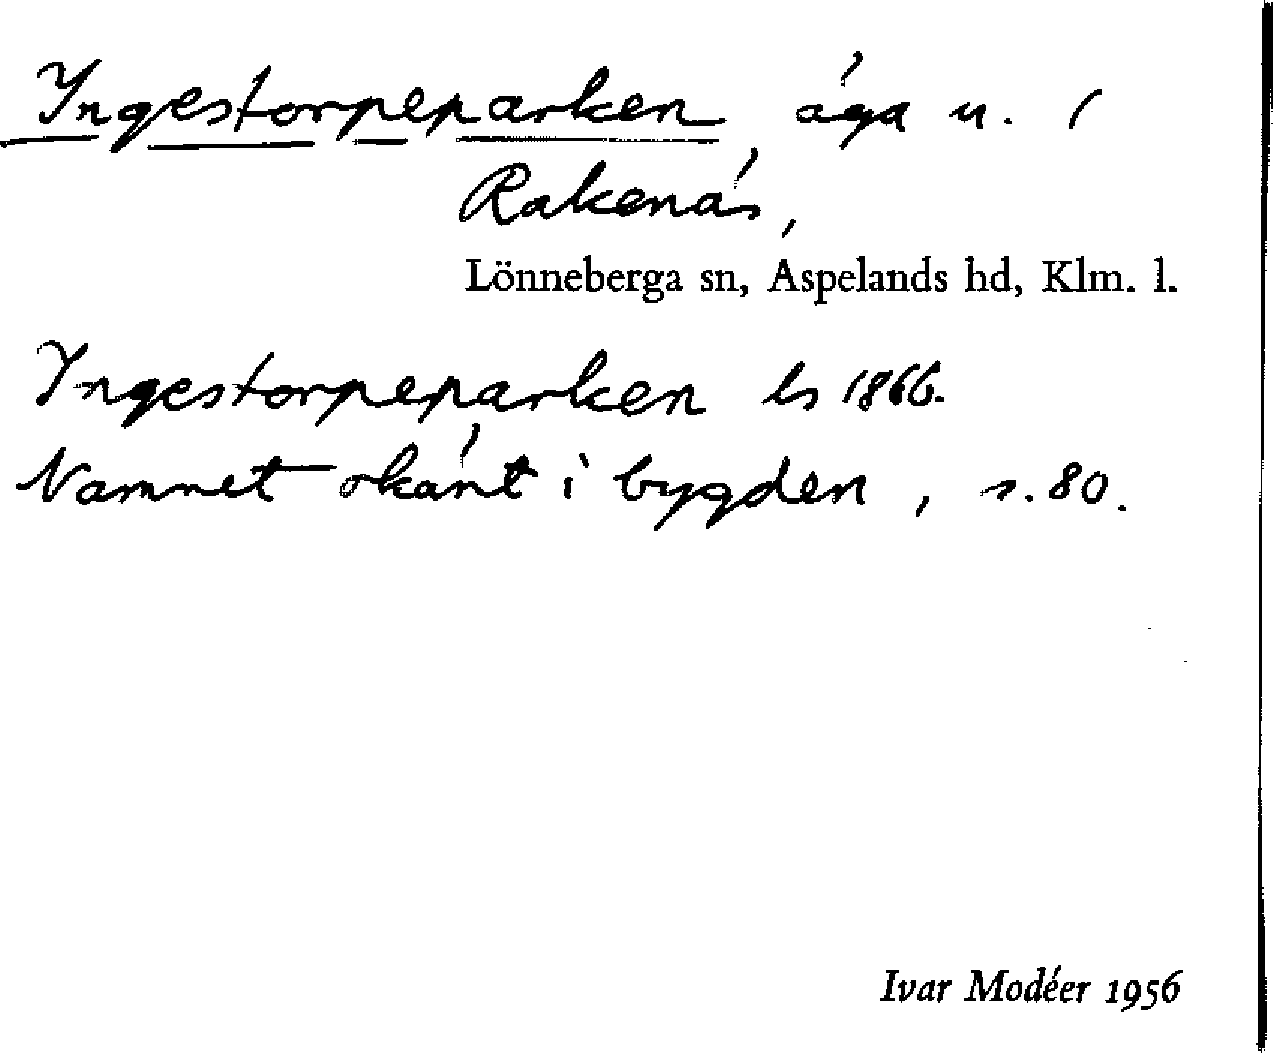 Ingestorpeparken, äga u. 1
Rakenäs,
Lönneberga sn, Aspelands hd, Klm. l.
Ingestorpeparken ls 1866.
Namnet okänt i bygden, s. 80.
Ivar Modéer 1956